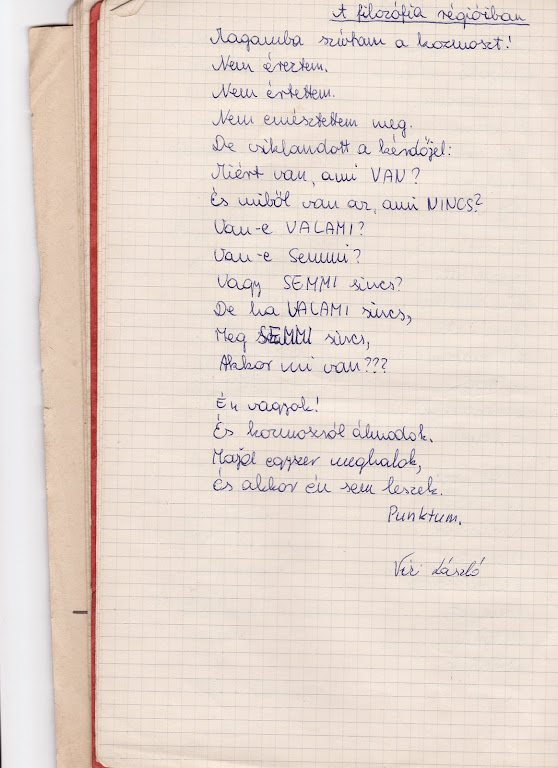 A filozófia régióiban
Magamba szívtam a kozmoszt!
Nem éreztem.
Nem értettem.
Nem emésztettem meg.
De viklandott a kérdőjel:
Miért van, ami VAN?
És miből van az, ami NINCS?
Van-e VALAMI?
Van-e Semmi?
Vagy SEMMI sincs?
De ha VALAMI sincs,
Meg SEMMI sincs,
Akkor mi van???
Én vagyok!
És kozmoszról álmodok.
Majd egyszer meghalok,
És akkor én sem leszek.
Punktum.
László